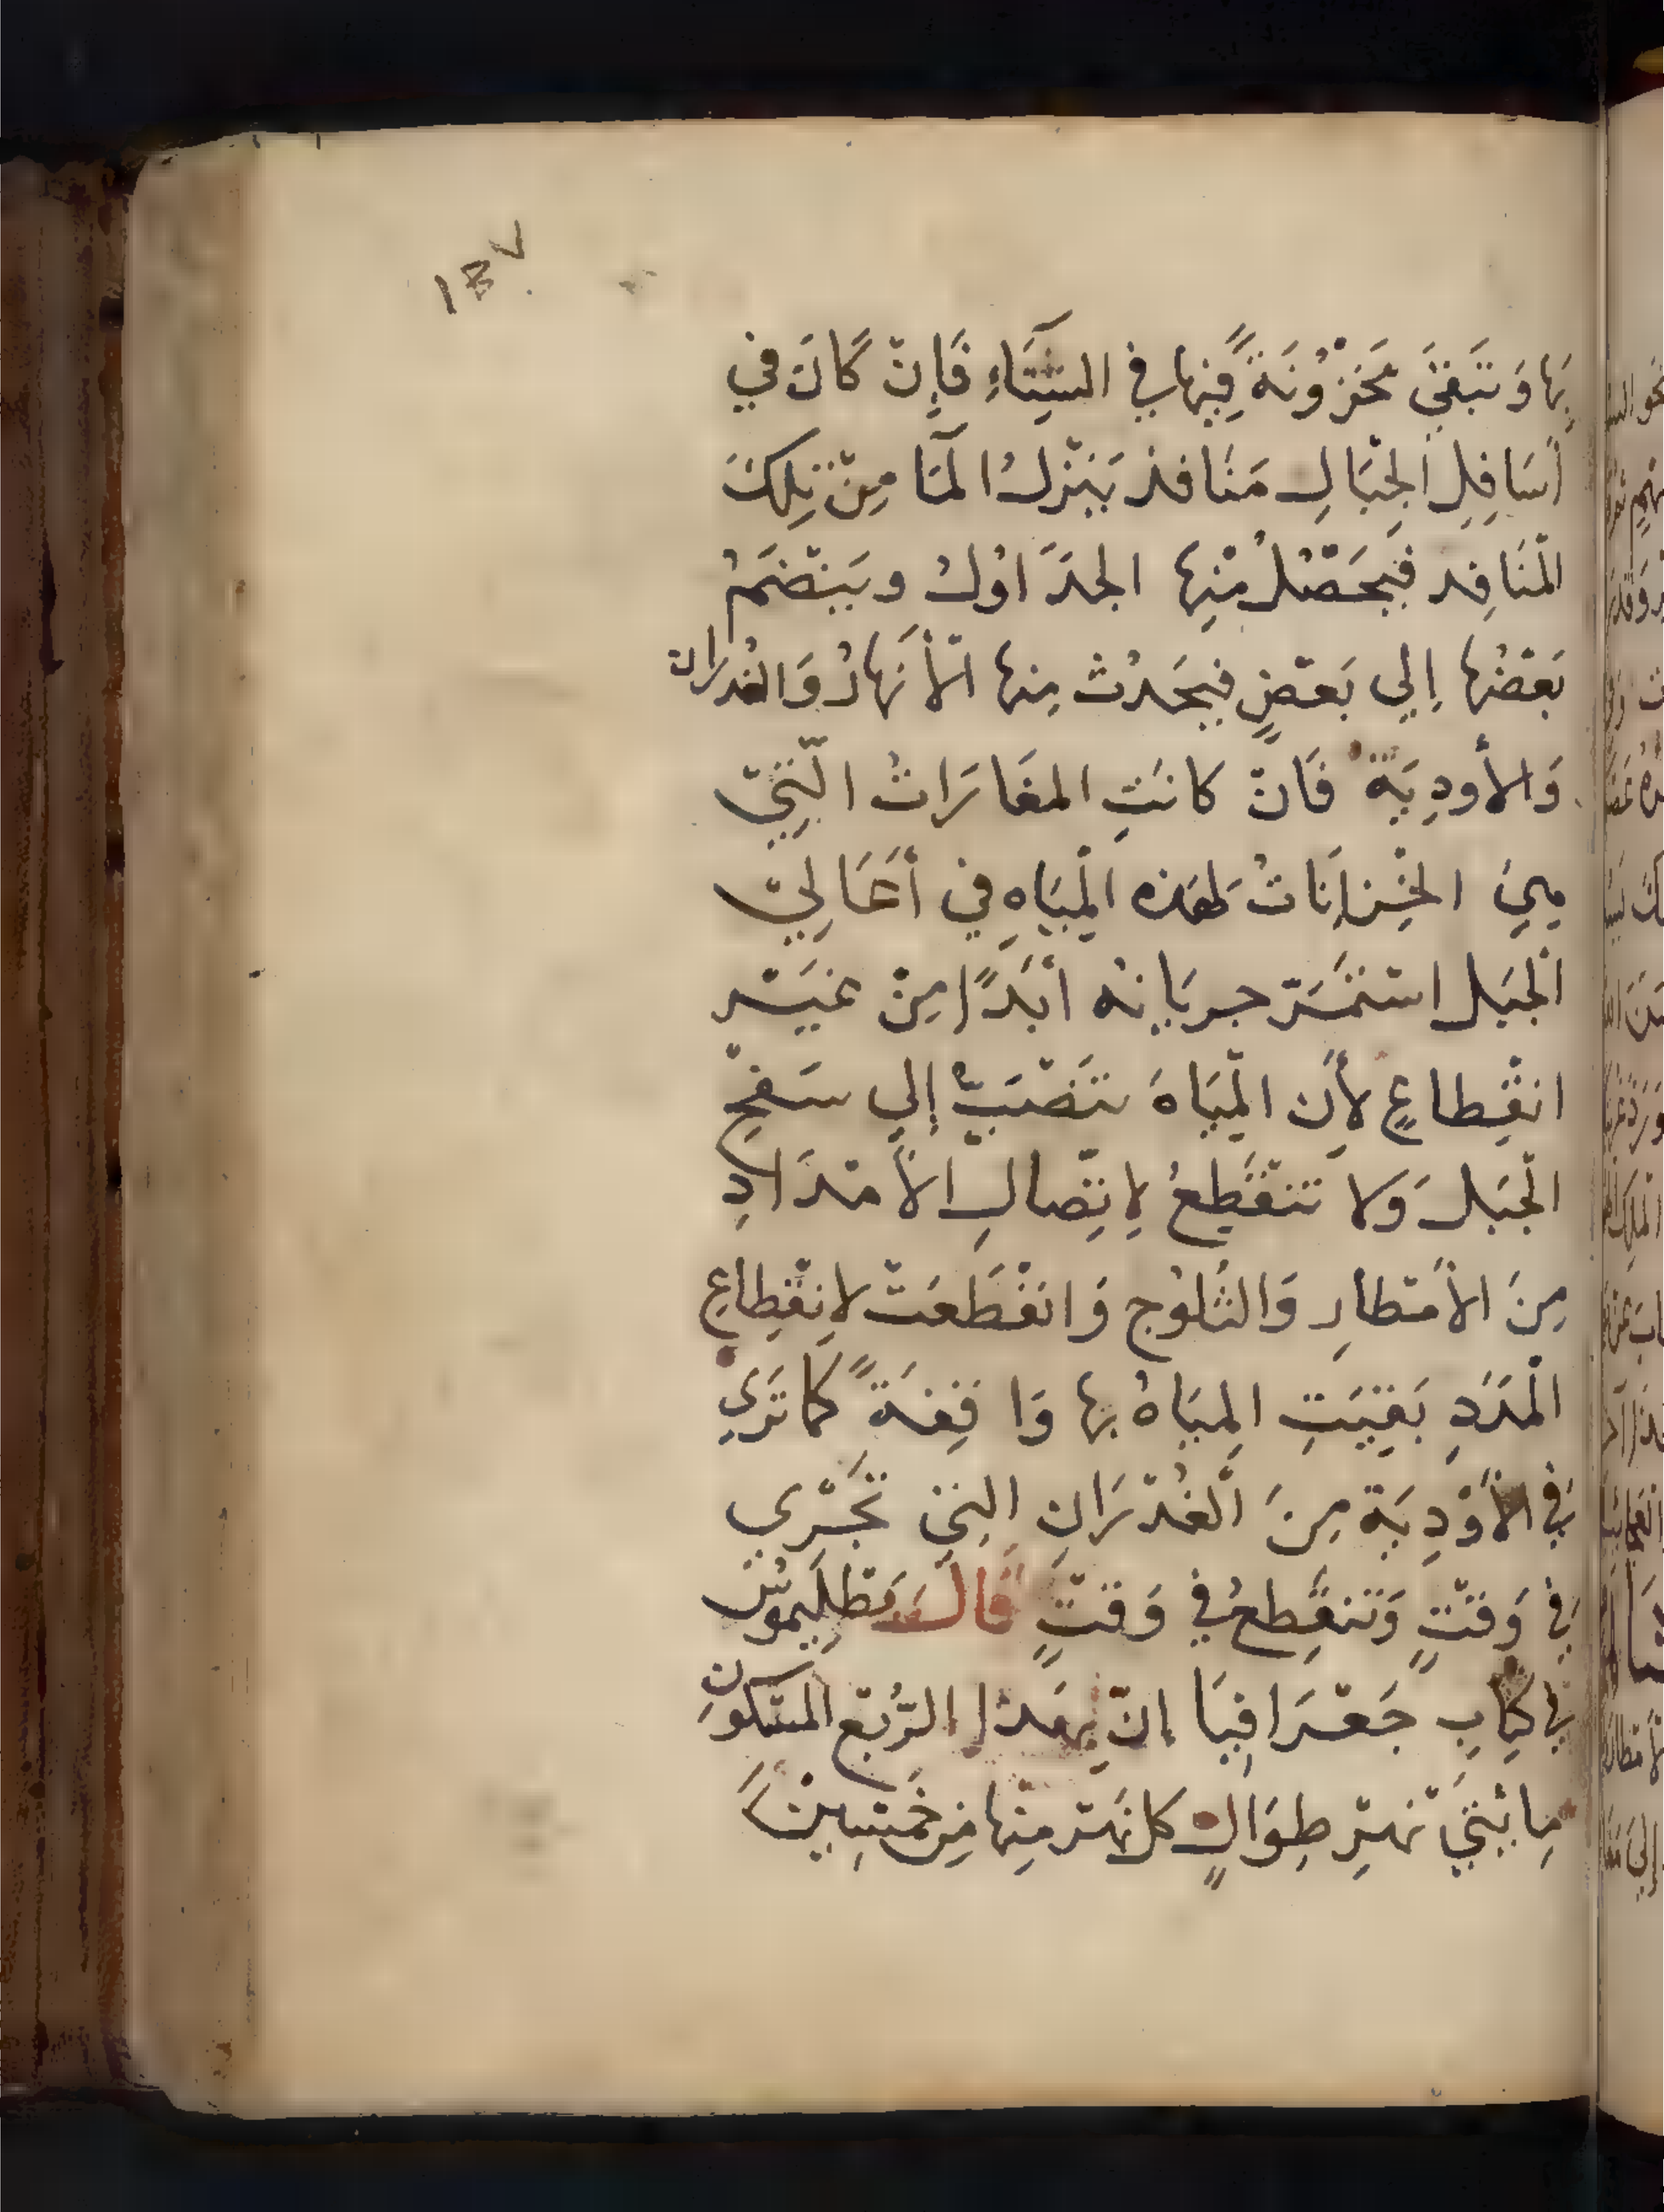 ١٤٧
بِهَا وَتَبقَى مَخزُونَةً فِيهَا فِي الشِّتَاءِ فَإِنْ كَانَ فِي
أسَافِلِ الجِبَالِ مَنَافذ يَنْزلُ المَآ مِنْ تِلكَ
المَنَافِد فَيحَصْلُ مْنِها الجدَاولُ ويَنْضَمُ
بَعْضُها إلي بَعْضٍ فيحَدُث مِنها الْأنَهارُ وَالغُدران
وَالأَودِيَةُ فَانْ كانَتِ المغَارَاتُ الَّتِيْ
هِيَ الخِزانَاتُ لهَذه الْمِيَاهِ فِي أعَالِيْ
الْجبَل اسْتمَرّ جريَانه أبَدًا مِنْ غَيْر
انقْطِاعٍ لأَِن الْمِيَاهَ تَنْصَبّ إلي سَفحِ
الْجبَل وَلا تَنْقَطِعُ لِاتِّصالِ الأَمْدَادِ
مِنَ الأمْطارِ وَالثُلُوج وَانقَطَعَتْ لانِقْطِاعِ
الْمَدَدِ بَقِيَتِ المِيَاهُ بها وَاقِفَةً كما تَرَي
فِي الأَوْدِيَة مِنَ الْغُدْرَانِ الَّتِي تَجْرِي
فِي وَقتٍ وَتنقَطِعُ فِي وَقتٍ قَالَ بَطلِيموُس
فِي كِتَابِ جَغْرَافِيَا إنّ بِهَذَا الرُّبْع المَسْكُونِ
مِائتَيَ نَهرٍ طِوَالٍ كل نَهْر مِنْها مِن خَمْسِينْ